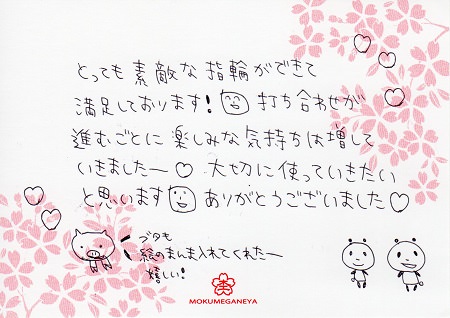 とっても素敵な指輪ができて
満足しております!打ち合わせが
進むごとに楽しみな気持ちは増して
いきましたー♡大切に使っていきたい
と思います ありがとうございました♡
ブタも
絵のまんま入れてくれたー
嬉しい!
MOKUMEGANEYA